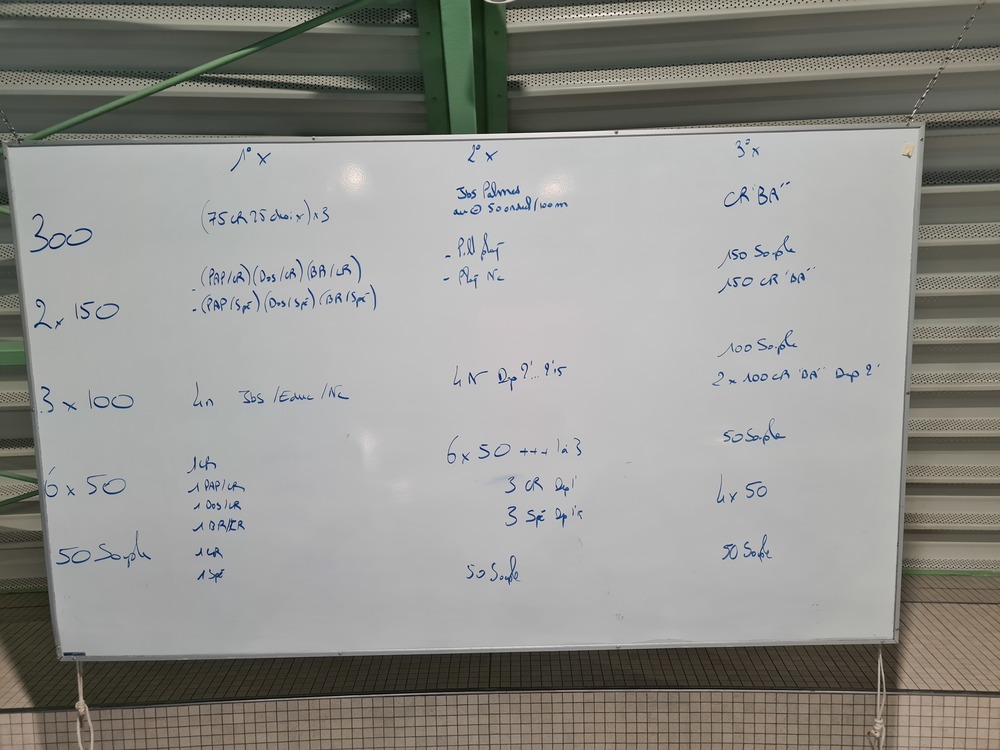 1° x 2° x 3° x
300 (75CR 25 choix) x 3 Jbs Palmes CR "BA"
50 ondul/100m
2 x 150 - (PAP/CR)(Dos/CR)(BR/CR) - Pull 150 Souple
- (PAP/Spé)(Dos/Spé)(BR/Spé) - Nc 150 CR "BA"
100 Souple
3 x 100 4n Jbs/Educ/Nc 4 N Dep 2'...2'15 2 x 100 CR "BA" Dep 2'
6 x 50 +++ 1 à 3 50 Souple
6 x 50 1 CR 3 CR Dep 1' 4 x 50
1 PAP/CR 3 Spé Dep 1'15
1 Dos/CR
1 BR/CR
50 Souple 1 CR 50 Souple 50 Souple
1 Spé